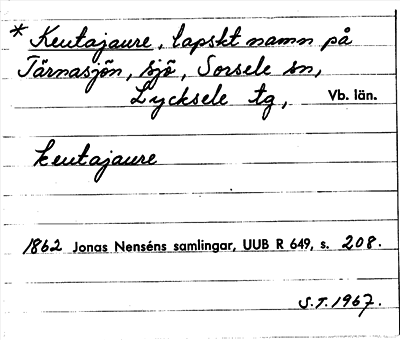 * Keutajaure, lapskt namn på
Tärnasjön, sjö, Sorsele sn,
Lycksele tg, Vb. län.
keutajaure
1862 Jonas Nenséns samlingar, UUB R 649, s. 208.
S.T. 1967.